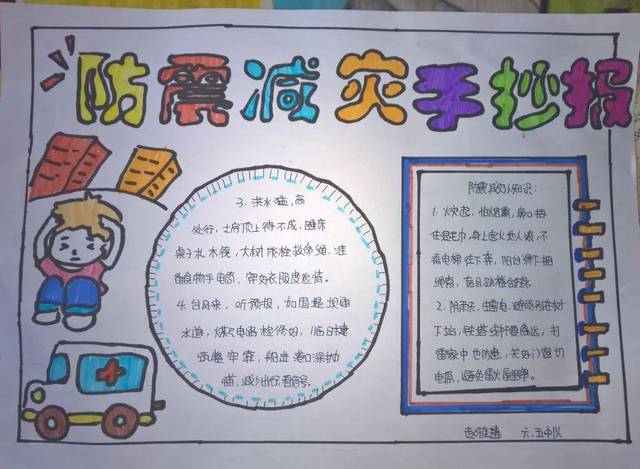 防震减灾手抄报
3. 洪水猛,高
处行,土房顶上待不成,睡床
桌子水木筏,大树能拴救命绳,准
备食物手电筒,穿好衣服度险情。
4. 台风来,听预报,加固
水道,煤气电路检修好,临时建
筑整牢靠,船进港口深抛
锚,减少出行看信号。
防震减灾小知识:
1. 火灾起,怕烟熏,鼻口捂
住湿毛巾,身上起火地上滚,不
乘电梯往下奔,阳台滑下捆
绳索,盲目跳楼会
2. 阴雨天,生雷电,避雨别在树
下站,铁塔线杆要离远,打
雷家中也防患,关好门窗切
电源,避免雷火屋里
六.五中队